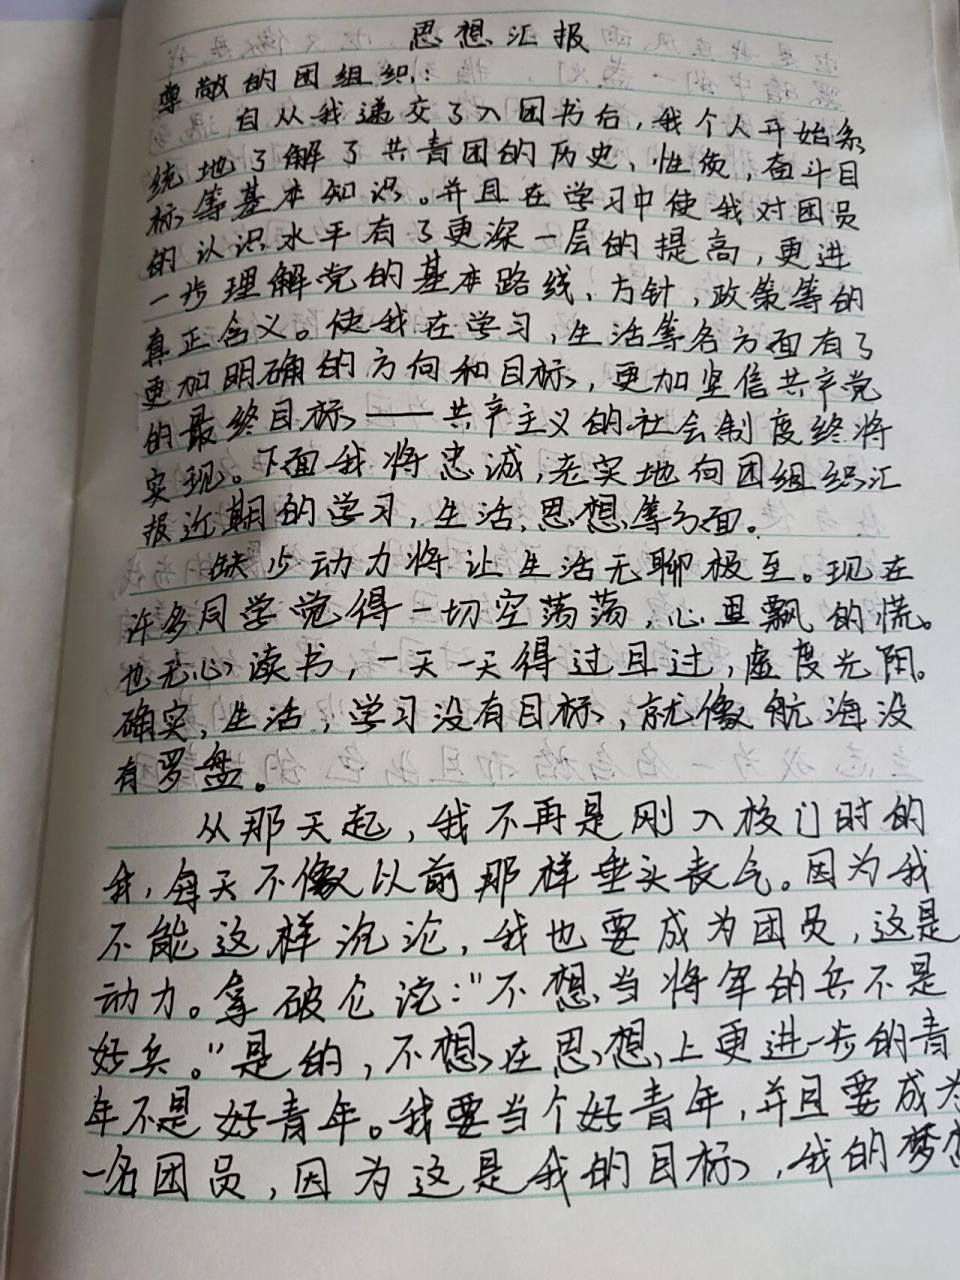 思想汇报
尊敬的团组织：
自从我递交了入团书后，我个人开始系
统地了解了共青团的历史、性质，奋斗目
标等基本知识。并且在学习中使我对团员
的认识水平有了更深一层的提高，更进
一步理解党的基本路线、方针，政策等的
真正含义。使我在学习，生活等各方面有了
更加明确的方向和目标，更加坚信共产党
的最终目标——共产主义的社会制度终将
实现。下面我将忠诚，老实地向团组织汇
报近期的学习，生活、思想等方面。
缺少动力将让生活无聊极至。现在
许多同学觉得一切空荡荡，心里飘的慌。
也无心读书，一天一天得过且过，虚度光阴。
确实，生活，学习没有目标，就像航海没
有罗盘。
从那天起，我不再是刚入校门时的
我，每天不像以前那样垂头丧气。因为我
不能这样沉沦，我也要成为团员，这是
动力。拿破仑说："不想当将军的兵不是
好兵。"是的，不想在思想上更进一步的青
年不是好青年。我要当个好青年，并且要成为
一名团员，因为这是我的目标，我的梦想